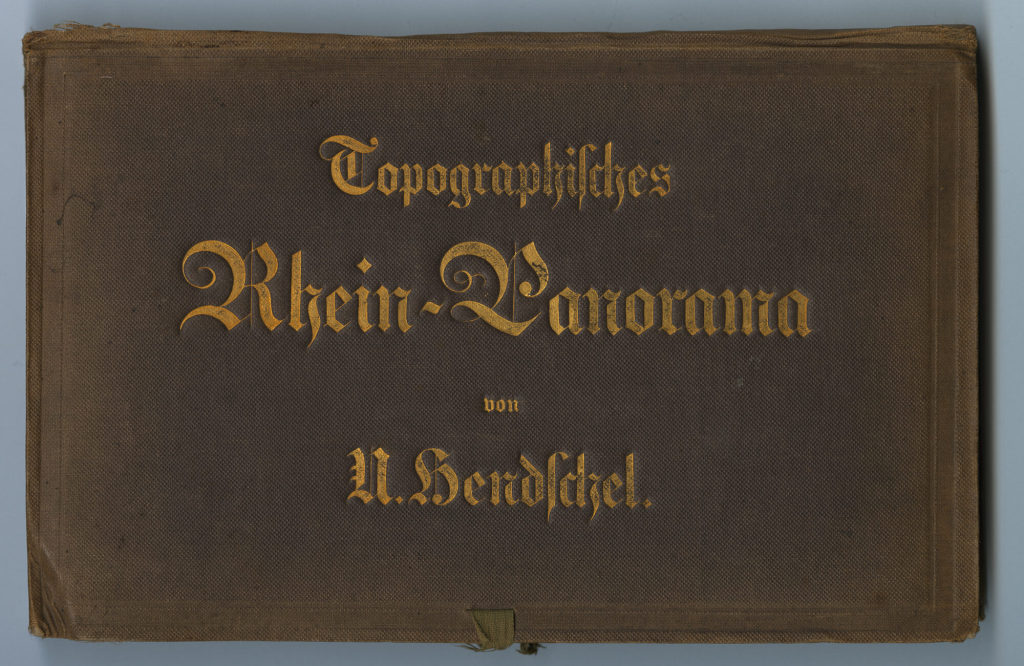 Topographisches
Rhein-Panorama
von
U. Hendschel.